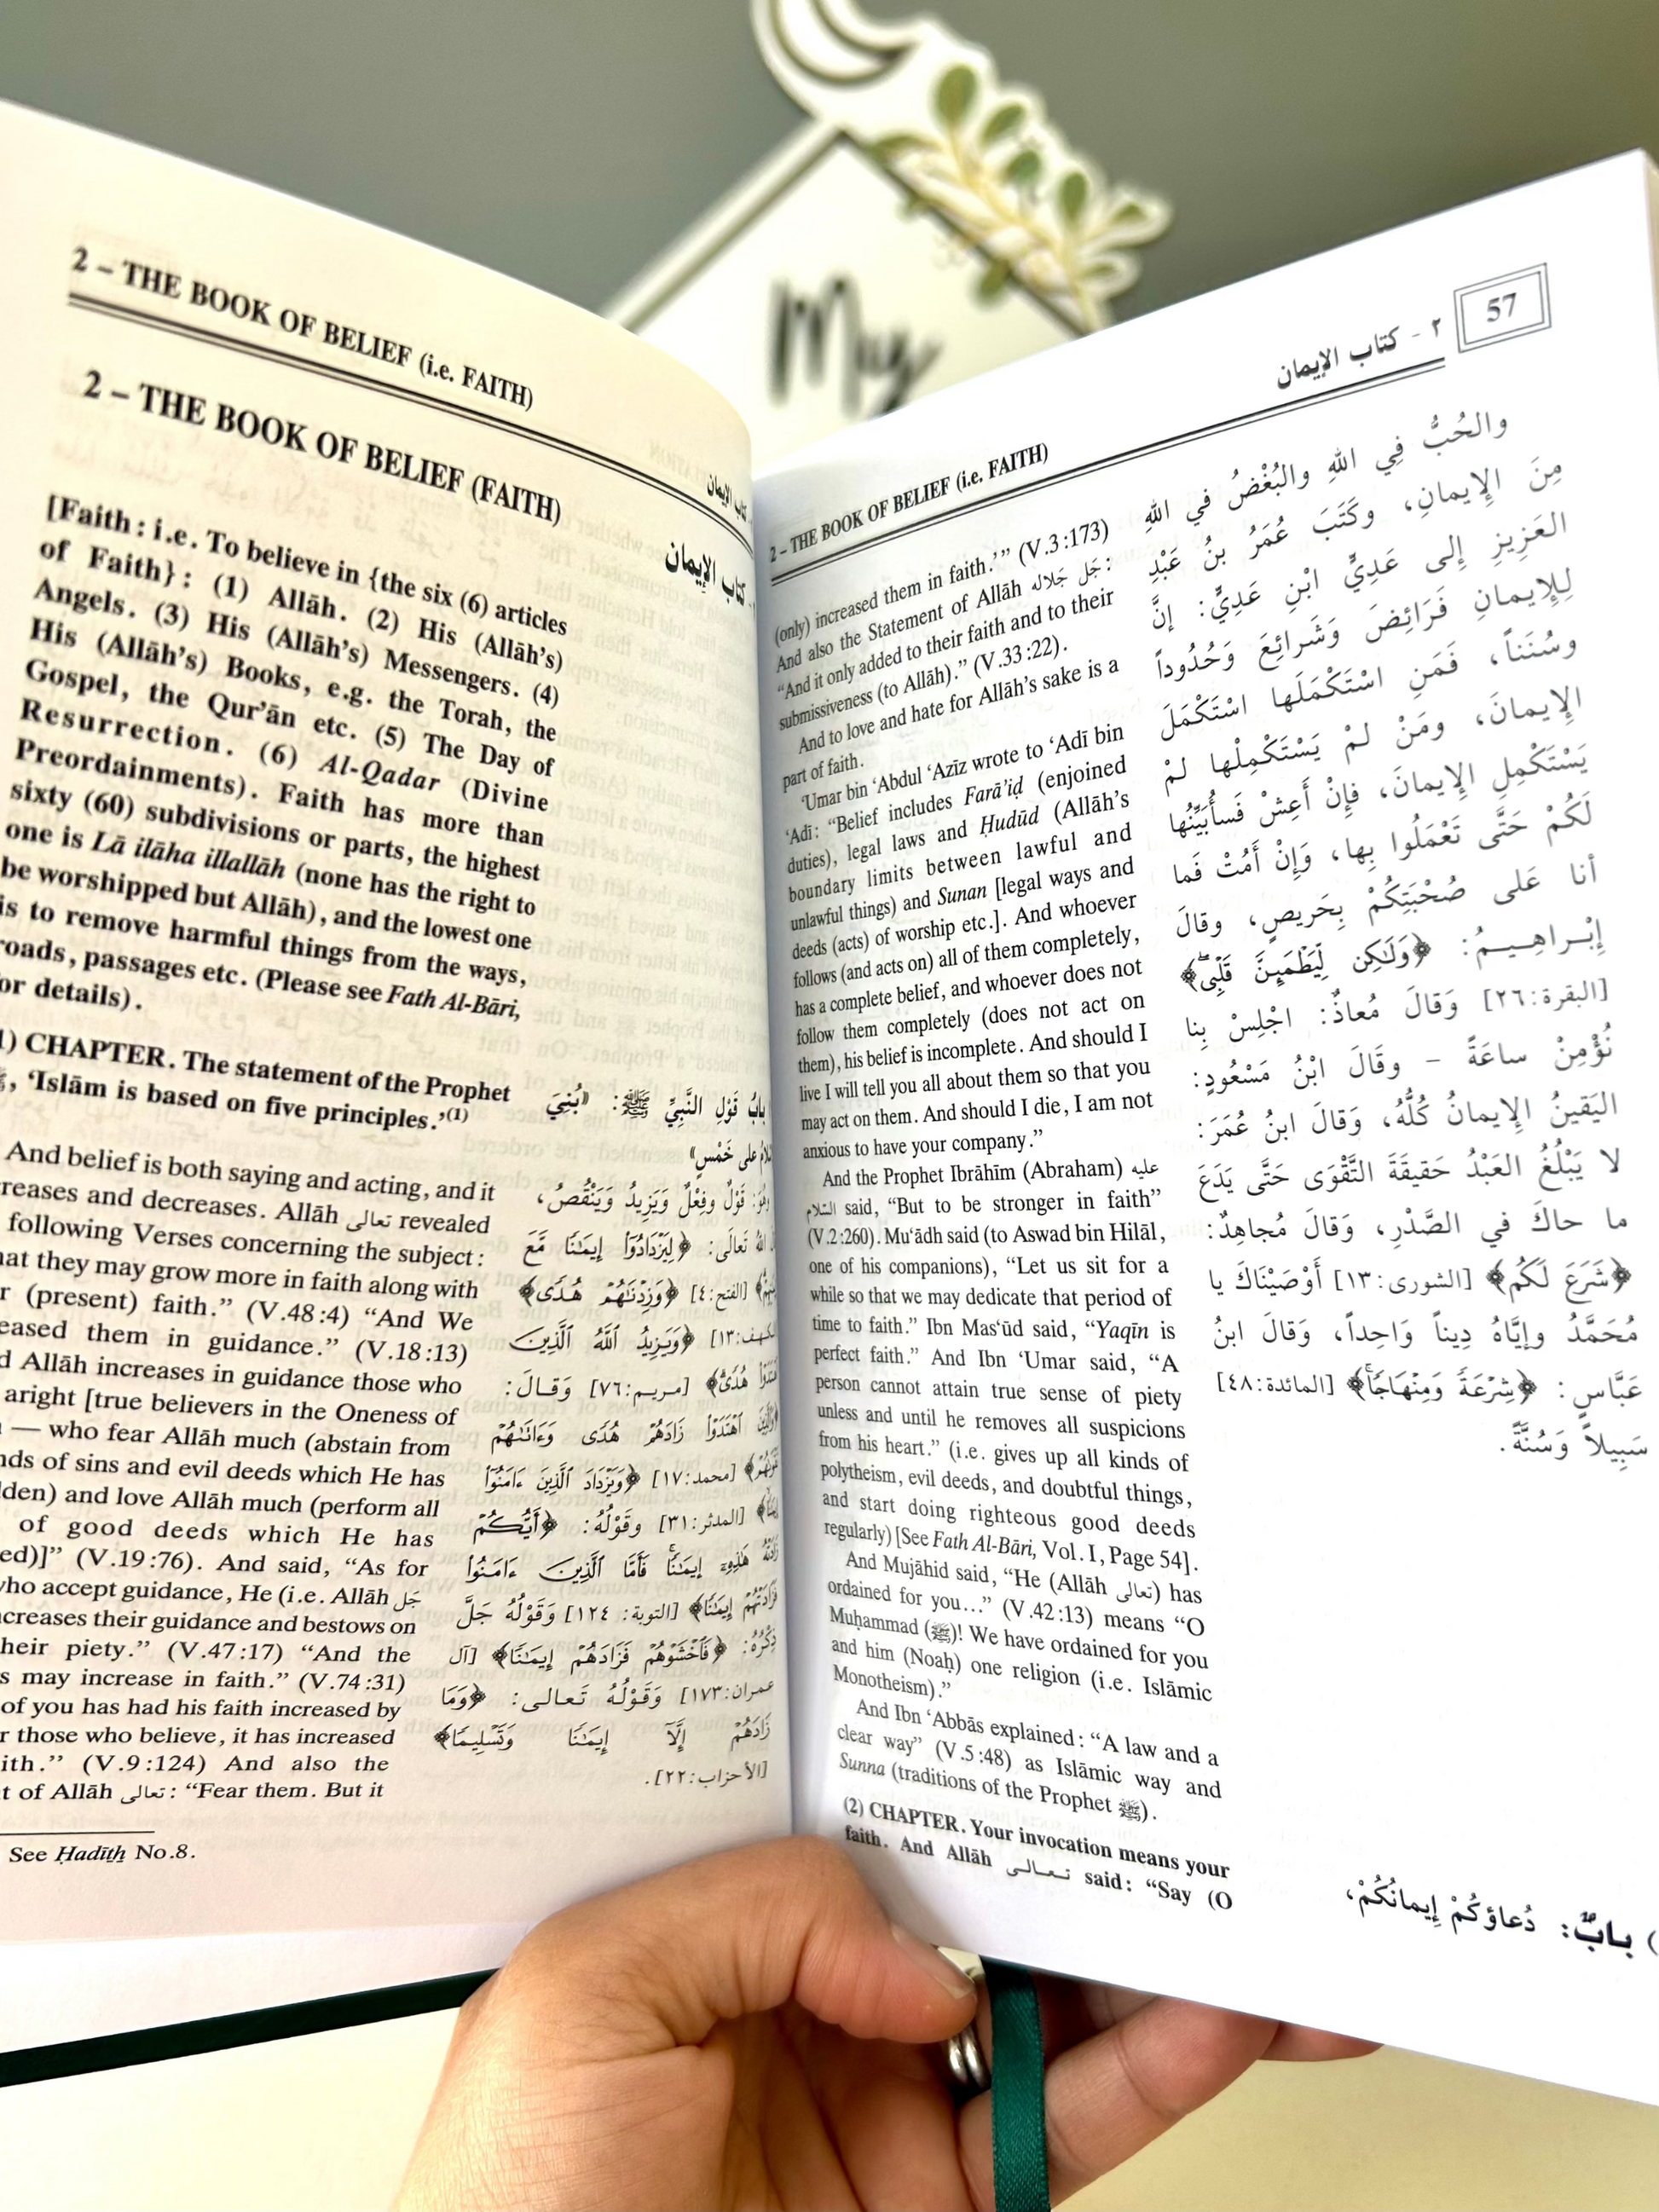 My
2 – THE BOOK OF BELIEF (i.e. FAITH)
كتاب الإيمان
2 – THE BOOK OF BELIEF (FAITH)
كتاب الإيمان
[Faith : i.e. To believe in {the six (6) articles
of Faith} : (1) Allāh. (2) His (Allāh's)
Angels. (3) His (Allāh's) Messengers. (4)
His (Allāh's) Books, e.g. the Torah, the
Gospel, the Qur'ān etc. (5) The Day of
Resurrection. (6) Al-Qadar (Divine
Preordainments). Faith has more than
sixty (60) subdivisions or parts, the highest
one is Lā ilāha illallāh (none has the right to
be worshipped but Allāh), and the lowest one
is to remove harmful things from the ways,
roads, passages etc. (Please see Fath Al-Bāri,
for details).
1) CHAPTER. The statement of the Prophet
, 'Islām is based on five principles.'(1)
And belief is both saying and acting, and it
reases and decreases. Allāh تعالى revealed
following Verses concerning the subject :
hat they may grow more in faith along with
r (present) faith." (V.48 :4) "And We
eased them in guidance." (V.18 :13)
d Allāh increases in guidance those who
aright [true believers in the Oneness of
— who fear Allāh much (abstain from
nds of sins and evil deeds which He has
dden) and love Allāh much (perform all
of good deeds which He has
ed)]" (V.19 :76). And said, "As for
who accept guidance, He (i.e. Allāh جل
creases their guidance and bestows on
heir piety." (V.47 :17) "And the
s may increase in faith." (V.74 :31)
of you has had his faith increased by
r those who believe, it has increased
ith." (V.9 :124) And also the
t of Allāh تعالى : "Fear them. But it
باب قَوْلِ النَّبِيِّ ﷺ: «بُنِيَ
على خَمْسٍ»
قَوْلٌ وفِعْلٌ وَيَزِيدُ وَيَنْقُصُ،
اللهُ تَعَالَى: ﴿لِيَزْدَادُوٓا۟ إِيمَـٰنًا مَّعَ
[الفتح:٤] ﴿وَزِدْنَـٰهُمْ هُدًى﴾
[الكهف:١٣] ﴿وَيَزِيدُ ٱللَّهُ ٱلَّذِينَ
هُدًى﴾ [مريم:٧٦] وَقَالَ:
﴿وَٱلَّذِينَ ٱهْتَدَوْا۟ زَادَهُمْ هُدًى وَءَاتَىٰهُمْ
[محمد:١٧] ﴿وَيَزْدَادَ ٱلَّذِينَ ءَامَنُوٓا۟
[المدثر:٣١] وقَوْلُهُ: ﴿أَيُّكُمْ
زَادَتْهُ هَـٰذِهِۦٓ إِيمَـٰنًا فَأَمَّا ٱلَّذِينَ ءَامَنُوا۟
فَزَادَتْهُمْ إِيمَـٰنًا﴾ [التوبة: ١٢٤] وَقَوْلُهُ جَلَّ
ذِكْرُهُ: ﴿فَٱخْشَوْهُمْ فَزَادَهُمْ إِيمَـٰنًا﴾ [آل
عمران:١٧٣] وَقَوْلُهُ تَعَالى: ﴿وَمَا
زَادَهُمْ إِلَّآ إِيمَـٰنًا وَتَسْلِيمًا﴾
[الأحزاب:٢٢].
See Ḥadīth No.8.
2 – THE BOOK OF BELIEF (i.e. FAITH)
٢ - كتاب الإيمان
57
(only) increased them in faith.'" (V.3 :173)
And also the Statement of Allāh جَل جَلاله :
"And it only added to their faith and to their
submissiveness (to Allāh)." (V.33 :22).
And to love and hate for Allāh's sake is a
part of faith.
'Umar bin 'Abdul 'Azīz wrote to 'Adī bin
'Adī: "Belief includes Farā'iḍ (enjoined
duties), legal laws and Ḥudūd (Allāh's
boundary limits between lawful and
unlawful things) and Sunan [legal ways and
deeds (acts) of worship etc.]. And whoever
follows (and acts on) all of them completely,
has a complete belief, and whoever does not
follow them completely (does not act on
them), his belief is incomplete. And should I
live I will tell you all about them so that you
may act on them. And should I die, I am not
anxious to have your company."
And the Prophet Ibrāhīm (Abraham) عليه
السلام said, "But to be stronger in faith"
(V.2 :260). Mu'ādh said (to Aswad bin Hilāl,
one of his companions), "Let us sit for a
while so that we may dedicate that period of
time to faith." Ibn Mas'ūd said, "Yaqīn is
perfect faith." And Ibn 'Umar said, "A
person cannot attain true sense of piety
unless and until he removes all suspicions
from his heart." (i.e. gives up all kinds of
polytheism, evil deeds, and doubtful things,
and start doing righteous good deeds
regularly) [See Fath Al-Bāri, Vol. I, Page 54].
And Mujāhid said, "He (Allāh تعالى) has
ordained for you..." (V.42 :13) means "O
Muḥammad (ﷺ)! We have ordained for you
and him (Noaḥ) one religion (i.e. Islāmic
Monotheism)."
And Ibn 'Abbās explained : "A law and a
clear way" (V.5 :48) as Islāmic way and
Sunna (traditions of the Prophet ﷺ).
(2) CHAPTER. Your invocation means your
faith. And Allāh تعالى said : "Say (O
والحُبُّ فِي اللهِ والبُغْضُ في اللهِ
مِنَ الإيمانِ، وكَتَبَ عُمَرُ بنُ عَبْدِ
العَزِيزِ إلى عَدِيِّ ابْنِ عَدِيٍّ: إنَّ
لِلإيمانِ فَرَائِضَ وَشَرائِعَ وَحُدُوداً
وسُنَناً، فَمَنِ اسْتَكْمَلَها اسْتَكْمَلَ
الإيمانَ، ومَنْ لمْ يَسْتَكْمِلْها لمْ
يَسْتَكْمِلِ الإيمانَ، فإِنْ أَعِشْ فَسأُبَيِّنُها
لَكُمْ حَتَّى تَعْمَلُوا بِها، وَإنْ أَمُتْ فَما
أنا عَلى صُحْبَتِكُمْ بِحَريصٍ، وقالَ
إبْراهِيمُ: ﴿وَلَـٰكِن لِّيَطْمَئِنَّ قَلْبِى﴾
[البقرة:٢٦] وَقَالَ مُعاذٌ: اجْلِسْ بِنا
نُؤْمِنْ ساعَةً – وقَالَ ابْنُ مَسْعُودٍ:
اليَقينُ الإيمانُ كُلُّهُ، وَقَالَ ابنُ عُمَرَ:
لا يَبْلُغُ العَبْدُ حَقيقَةَ التَّقْوَى حَتَّى يَدَعَ
ما حاكَ في الصَّدْرِ، وَقَالَ مُجاهِدٌ:
﴿شَرَعَ لَكُم﴾ [الشورى:١٣] أَوْصَيْنَاكَ يا
مُحَمَّدُ وإيَّاهُ دِيناً وَاحِداً، وَقَالَ ابنُ
عَبَّاسٍ: ﴿شِرْعَةً وَمِنْهَاجًا﴾ [المائدة:٤٨]
سَبِيلاً وَسُنَّةً.
) بابٌ: دُعاؤكُمْ إيمانُكُمْ،